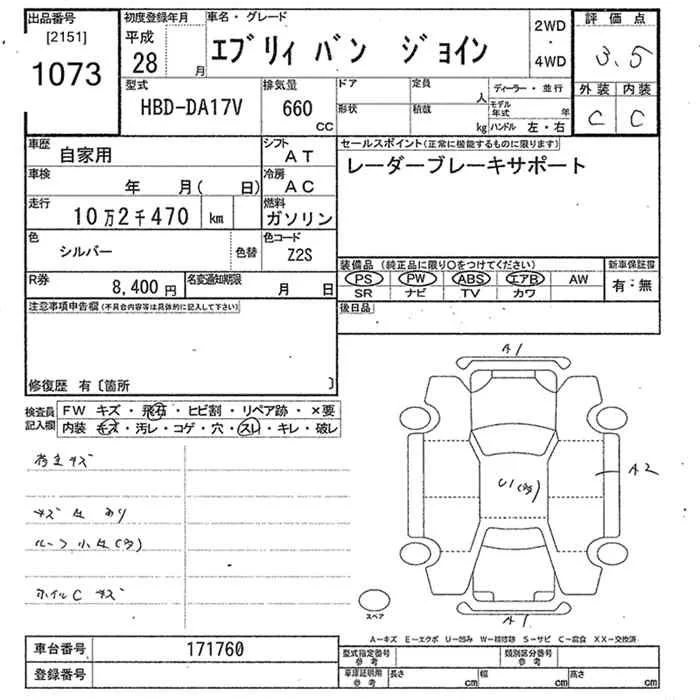 出品番号
[2151]
1073
初度登録年月
平成
28 月
車名・グレード
エブリィ バン ジョイン
2WD
・
4WD
評価点
3.5
外装 内装
C C
型式
HBD-DA17V
排気量
660
CC
ドア
形状
定員
人
積載
kg
ディーラー・並行
モデル年式 年
ハンドル 左・右
車歴
自家用
シフト
AT
車検
年 月( 日)
冷房
AC
走行
10万2千470 km
燃料
ガソリン
色
シルバー
色替
色コード
Z2S
R券
8,400円
名変通知期限
月 日
セールスポイント(正常に機能するものに限ります)
レーダーブレーキサポート
装備品 (純正品に限り○をつけてください)
PS PW ABS エアB AW
SR ナビ TV カワ
新車保証書
有:無
後日品
注意事項申告欄(不具合内容等は具体的に記入して下さい)
修復歴 有〔箇所 〕
検査員
記入欄
FW キズ・飛石・ヒビ割・リペア跡・×要
内装 キズ・汚レ・コゲ・穴・スレ・キレ・破レ
キズ
あり
ルーフ小
ホイルC キズ
A1
U1(多)
A2
A1
スペア
A－キズ E－エクボ U－凹み W－補修跡 S－サビ C－腐食 XX－交換済
車台番号
171760
登録番号
型式指定番号
参考
類別区分番号
参考
車庫証明用
参考
長さ cm
幅 cm
高さ cm